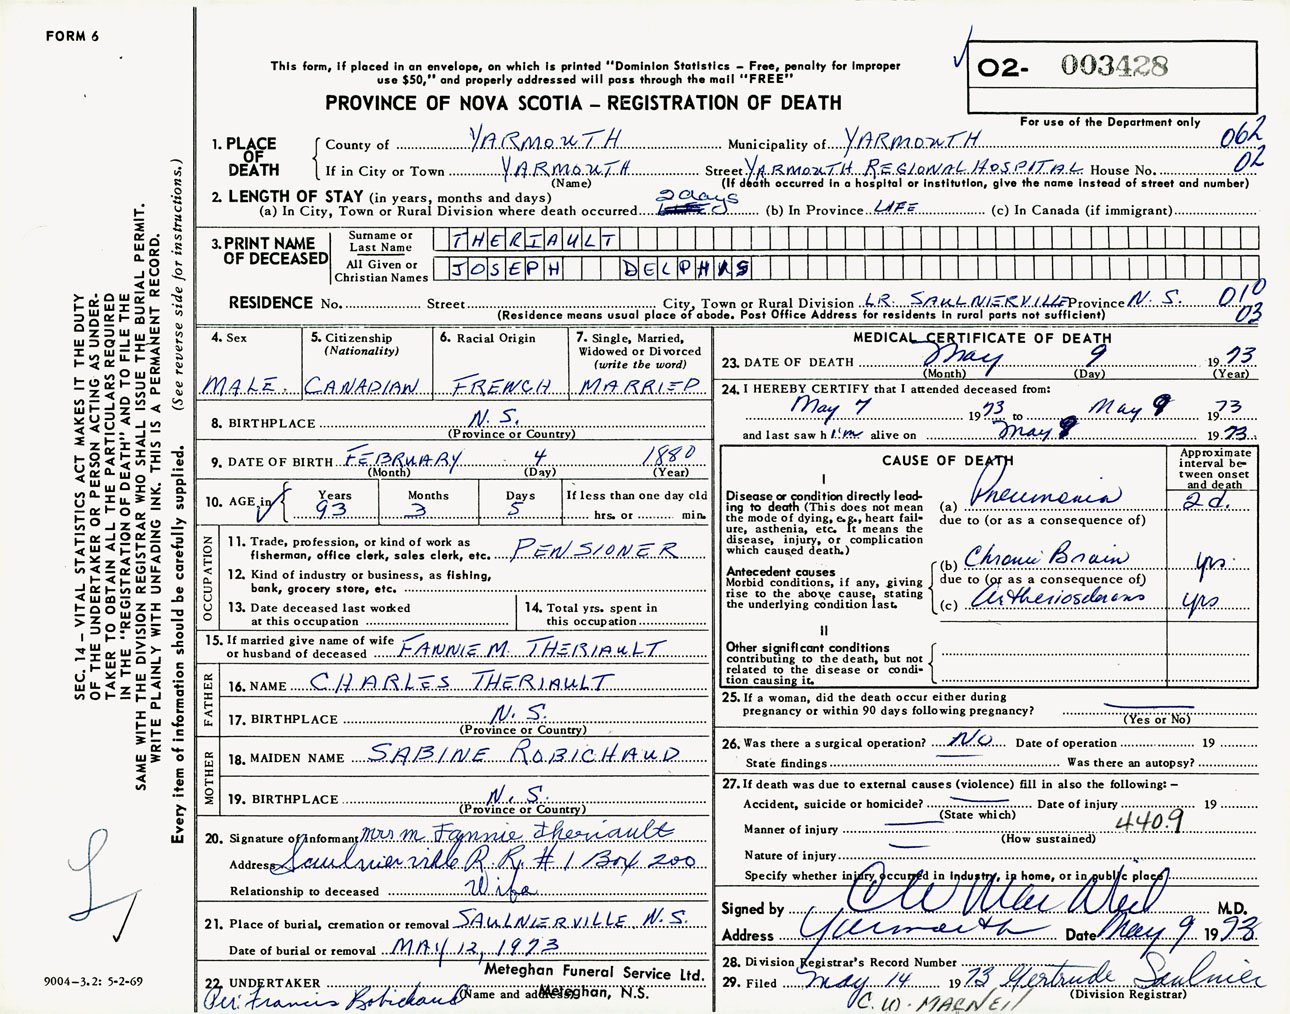 FORM 6
This form, if placed in an envelope, on which is printed "Dominion Statistics – Free, penalty for improper
use $50," and properly addressed will pass through the mail "FREE"
PROVINCE OF NOVA SCOTIA – REGISTRATION OF DEATH
02- 003428
For use of the Department only
1. PLACE OF DEATH
County of YARMOUTH Municipality of YARMOUTH 062
If in City or Town YARMOUTH Street YARMOUTH REGIONAL HOSPITAL House No. 02
(Name) (If death occurred in a hospital or institution, give the name instead of street and number)
2. LENGTH OF STAY (in years, months and days) 2 days
(a) In City, Town or Rural Division where death occurred (b) In Province LIFE (c) In Canada (if immigrant)
3. PRINT NAME OF DECEASED
Surname or Last Name THERIAULT
All Given or Christian Names JOSEPH DELPHIS
RESIDENCE No. Street City, Town or Rural Division LR. SAULNIERVILLE Province N.S. 010
(Residence means usual place of abode. Post Office Address for residents in rural parts not sufficient) 03
4. Sex
MALE.
5. Citizenship
(Nationality)
CANADIAN
6. Racial Origin
FRENCH
7. Single, Married,
Widowed or Divorced
(write the word)
MARRIED
8. BIRTHPLACE N.S.
(Province or Country)
9. DATE OF BIRTH FEBRUARY 4 1880
(Month) (Day) (Year)
10. AGE in Years 93 Months 3 Days 5 If less than one day old
hrs. or min.
OCCUPATION
11. Trade, profession, or kind of work as
fisherman, office clerk, sales clerk, etc. PENSIONER
12. Kind of industry or business, as fishing,
bank, grocery store, etc.
13. Date deceased last worked
at this occupation
14. Total yrs. spent in
this occupation
15. If married give name of wife
or husband of deceased FANNIE M. THERIAULT
FATHER
16. NAME CHARLES THERIAULT
17. BIRTHPLACE N.S.
(Province or Country)
MOTHER
18. MAIDEN NAME SABINE ROBICHAUD
19. BIRTHPLACE N.S.
(Province or Country)
20. Signature of Informant Mrs M. Fannie Theriault
Address Saulnierville R.R. #1 Box 200
Relationship to deceased Wife
21. Place of burial, cremation or removal SAULNIERVILLE, N.S.
Date of burial or removal MAY 12, 1973
22. UNDERTAKER Meteghan Funeral Service Ltd.
(Name and address) Meteghan, N.S.
Per: Francis Robichaud
MEDICAL CERTIFICATE OF DEATH
23. DATE OF DEATH May 9 1973
(Month) (Day) (Year)
24. I HEREBY CERTIFY that I attended deceased from:
May 7 1973 to May 9 1973
and last saw him alive on May 9 1973
CAUSE OF DEATH
Approximate
interval be-
tween onset
and death
I
Disease or condition directly lead-
ing to death (This does not mean
the mode of dying, e.g., heart fail-
ure, asthenia, etc. It means the
disease, injury, or complication
which caused death.)
(a) Pneumonia 2d.
due to (or as a consequence of)
Antecedent causes
Morbid conditions, if any, giving
rise to the above cause, stating
the underlying condition last.
(b) Chronic Brain yrs.
due to (or as a consequence of)
(c) Artheriosclerosis yrs
II
Other significant conditions
contributing to the death, but not
related to the disease or condi-
tion causing it.
25. If a woman, did the death occur either during
pregnancy or within 90 days following pregnancy?
(Yes or No)
26. Was there a surgical operation? NO Date of operation 19
State findings Was there an autopsy?
27. If death was due to external causes (violence) fill in also the following: –
Accident, suicide or homicide? Date of injury 19
(State which)
Manner of injury 440.9
(How sustained)
Nature of injury
Specify whether injury occurred in industry, in home, or in public place
Signed by CW MacNeil M.D.
Address Yarmouth Date May 9 1973
28. Division Registrar's Record Number
29. Filed May 14 1973 Gertrude Saulnier
(Division Registrar)
C.W. MACNEIL
SEC. 14 – VITAL STATISTICS ACT MAKES IT THE DUTY
OF THE UNDERTAKER OR PERSON ACTING AS UNDER-
TAKER TO OBTAIN ALL THE PARTICULARS REQUIRED
IN THE "REGISTRATION OF DEATH" AND TO FILE THE
SAME WITH THE DIVISION REGISTRAR WHO SHALL ISSUE THE BURIAL PERMIT.
WRITE PLAINLY WITH UNFADING INK. THIS IS A PERMANENT RECORD.
Every item of information should be carefully supplied. (See reverse side for instructions.)
9004-3.2: 5-2-69